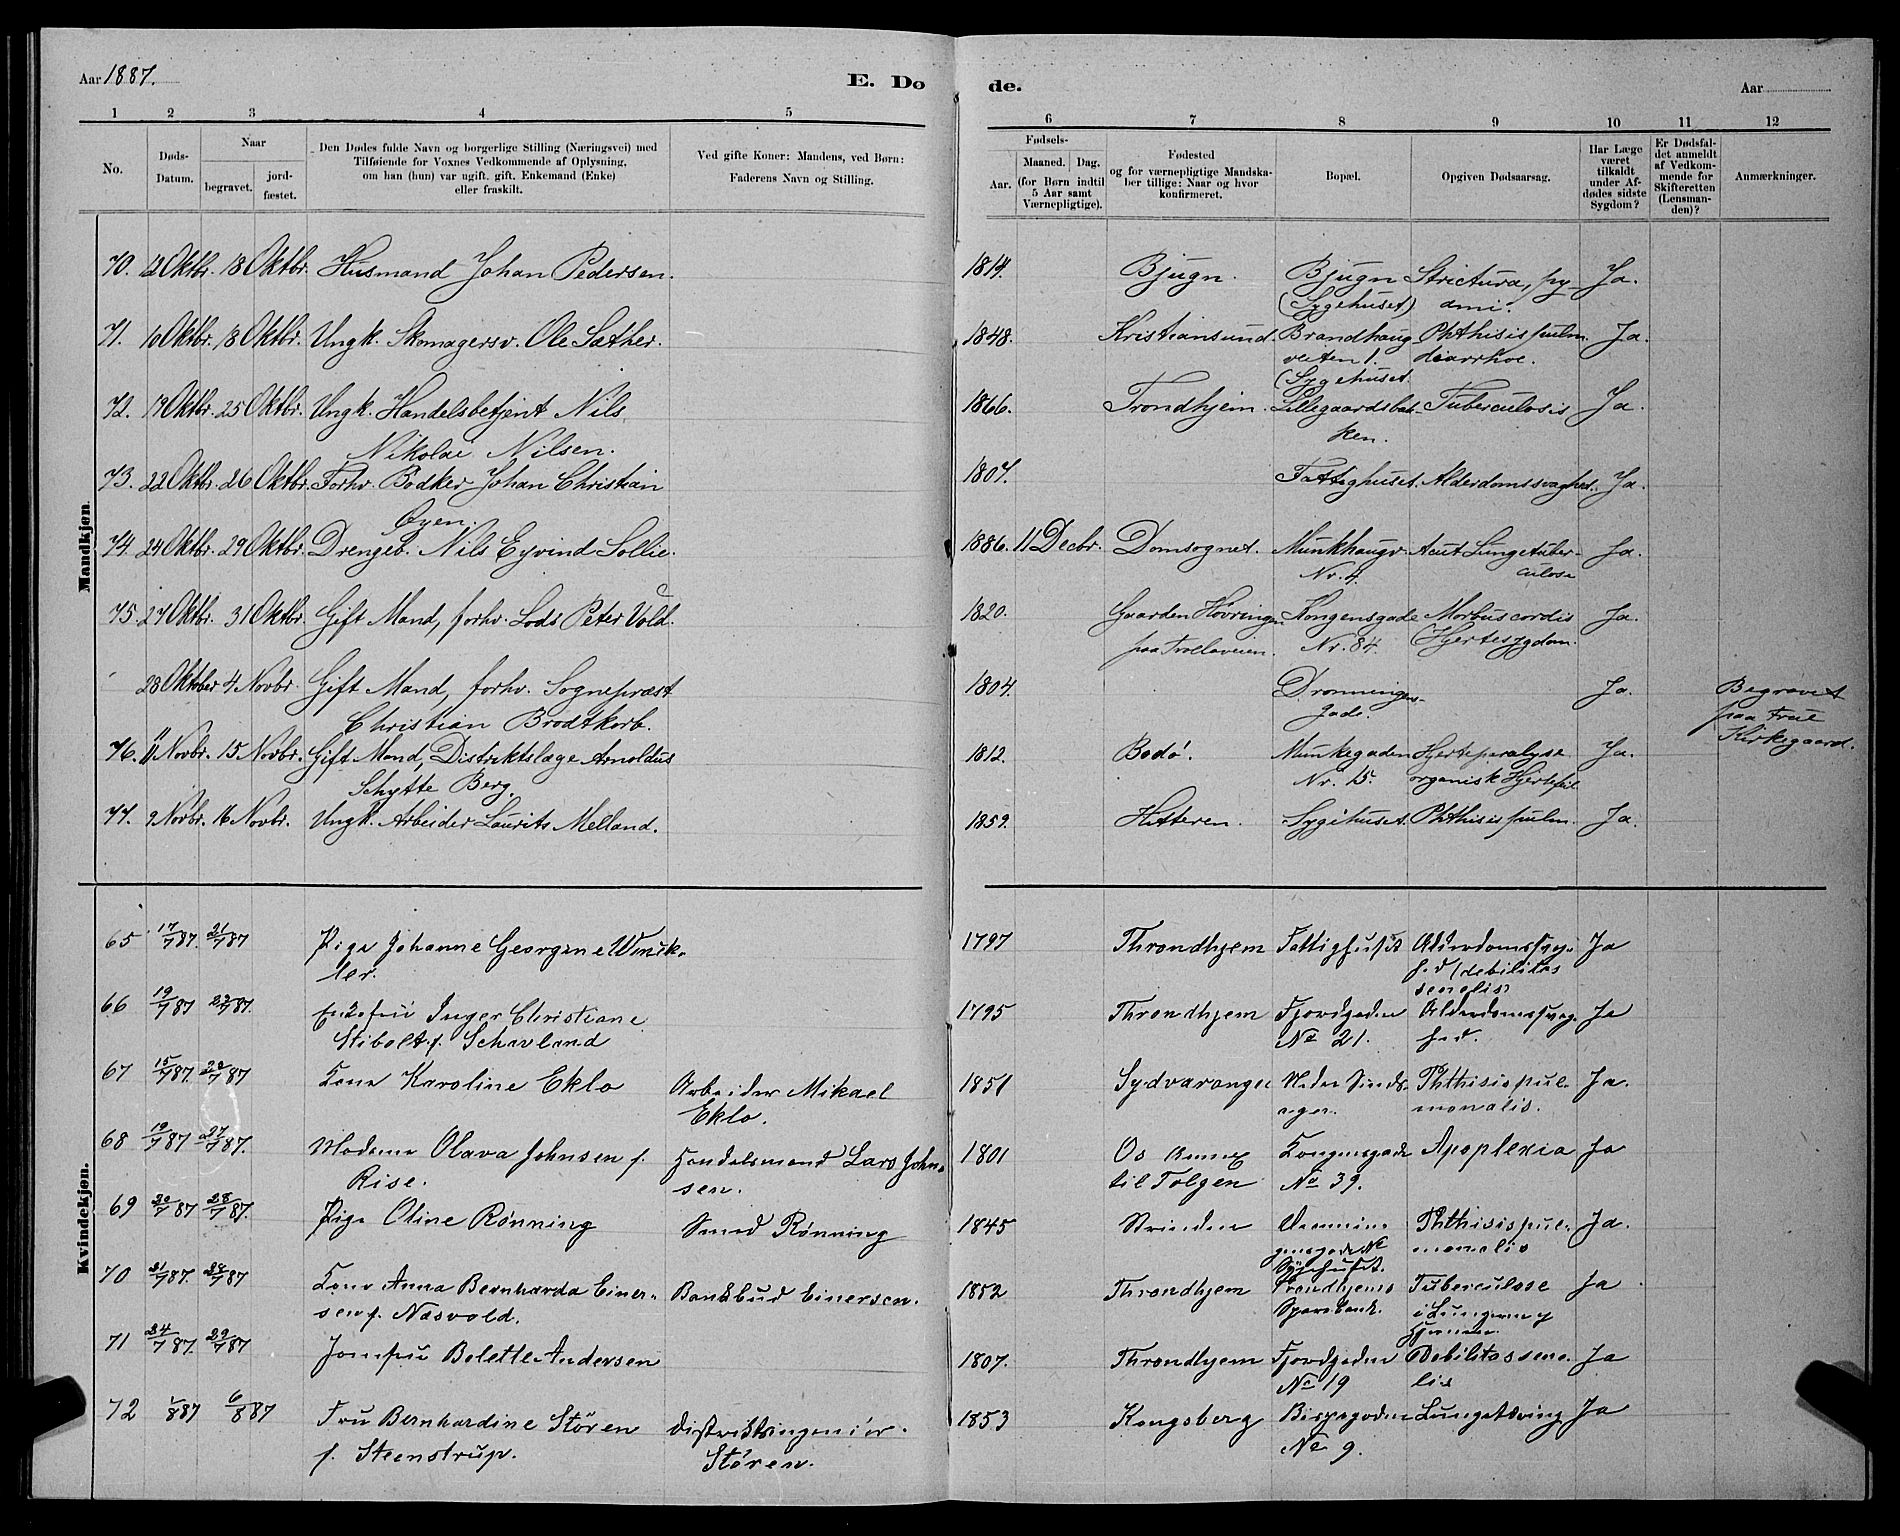 Aar 1887.
E. Dø
de.
Aar
1 2 3 4 5 6 7 8 9 10 11 12
No.
Døds-Datum.
Naar
begravet.
jord-fæstet.
Den Dødes fulde Navn og borgerlige Stilling (Næringsvei) med
Tilføiende for Voxnes Vedkommende af Oplysning,
om han (hun) var ugift. gift. Enkemand (Enke)
eller fraskilt.
Ved gifte Koner: Mandens, ved Børn:
Faderens Navn og Stilling.
Fødsels-
Aar.
Maaned.
Dag.
(for Børn indtil
5 Aar samt
Værnepligtige).
Fødested
og for værnepligtige Mandska-
ber tillige: Naar og hvor
konfirmeret.
Bopæl.
Opgiven Dødsaarsag.
Har Læge
været
tilkaldt
under Af-
dødes sidste
Sygdom?
Er Dødsfal-
det anmeldt
af Vedkom-
mende for
Skifteretten
(Lensman-
den)?
Anmærkninger.
Mandkjøn.
70. 12 Oktbr. 18 Oktbr. Husmand Johan Pedersen. 1814. Bjugn. Bjugn Strictura, py- Ja.
(Sygehuset) ämi.
71. 10 Oktbr. 18 Oktbr. Ungk. Skomagersv. Ole Sæther. 1848. Kristiansund. Brandhaug- Phthisis pulm. Ja.
veiten 1. diarrhoe.
(Sygehuset.
72. 19 Oktbr. 25 Oktbr. Ungk. Handelsbetjent Nils 1866. Trondhjem. Lillegaardsbak- Tuberculosis Ja.
Nikolai Nilsen. ken.
73. 22 Oktbr. 26 Oktbr. Forhv. Bødker Johan Christian 1807. Fattighuset. Alderdomssvaghed. Ja.
Øyen.
74. 24 Oktbr. 29 Oktbr. Drengeb. Nils Eyvind Sollie. 1886. 11 Decbr. Domsognet. Munkhaugv. Acut Lungetuber- Ja.
Nr. 4. culose
75. 27 Oktbr. 31 Oktbr. Gift Mand, forhv. Lods Peter Vold. 1820. Gaarden Høvringen Kongensgade Morbus cordis Ja.
paa Trollaveien. Nr. 84. (Hjertesygdom.
28 Oktober 4 Novbr. Gift Mand, forhv. Sognepræst 1804. Dronningens- Ja. Begravet
Christian Brodtkorb. gade. paa Frue
Kirkegaard.
76. 11 Novbr. 15 Novbr. Gift Mand, Distriktslæge Arnoldus 1812. Bodö. Munkegaden Hjerteparalyse Ja.
Schytte Berg. Nr. 15. organisk Hjertefeil
77. 9 Novbr. 16 Novbr. Ungk. Arbeider Laurits Melland. 1859. Hitteren. Sygehuset. Phthisis pulm. Ja.
Kvindekjøn.
65 17/7 87. 21/7 87 Pige Johanne Georgine Winck- 1797 Throndhjem Fattighuset Alderdomssvag- Ja
ler. hed (debilitas
senelis)
66 19/7 87 23/7 87. Enkefru Inger Christiane 1795 Throndhjem Fjordgaden Alderdomssvag- Ja
Stibolt f. Schavland No 21. hed.
67 15/7 87. 22/7 87 Kone Karoline Eklo Arbeider Mikael 1851 Sydvaranger Phthisis pul- Ja.
Eklo. monalis.
68 19/7 87 27/7 87. Madame Olava Johnsen f. Handelsmand Lars John- 1801 Os Annex Kongensgade Apoplexia Ja
Rise. sen. til Tolgen No 39.
69 20/7 87 28/7 87. Pige Oline Rønning Smed Rønning 1845 Strinden Dronnin- Phthisis pul- Ja.
gensgade No monalis
Sygehuset.
70 21/7 87. 28/7 87 Kone Anna Bernharda Einer- Bankbud Einersen. 1852 Throndhjem Trondhjems Tuberculose Ja
sen f. Næsvold. Sparebank. i Lungerne og
Hjernen.
71 24/7 87. 29/7 87 Jomfru Bolette Andersen 1807. Throndhjem Fjordgaden Debilitas sene- Ja
No 19 lis
72 1/8 87 6/8 87 Fru Bernhardine Stören Distriktsingeniör. 1853 Kongsberg Bispegaden Lungetæring Ja
f. Steenstrup. Stören. No 9.